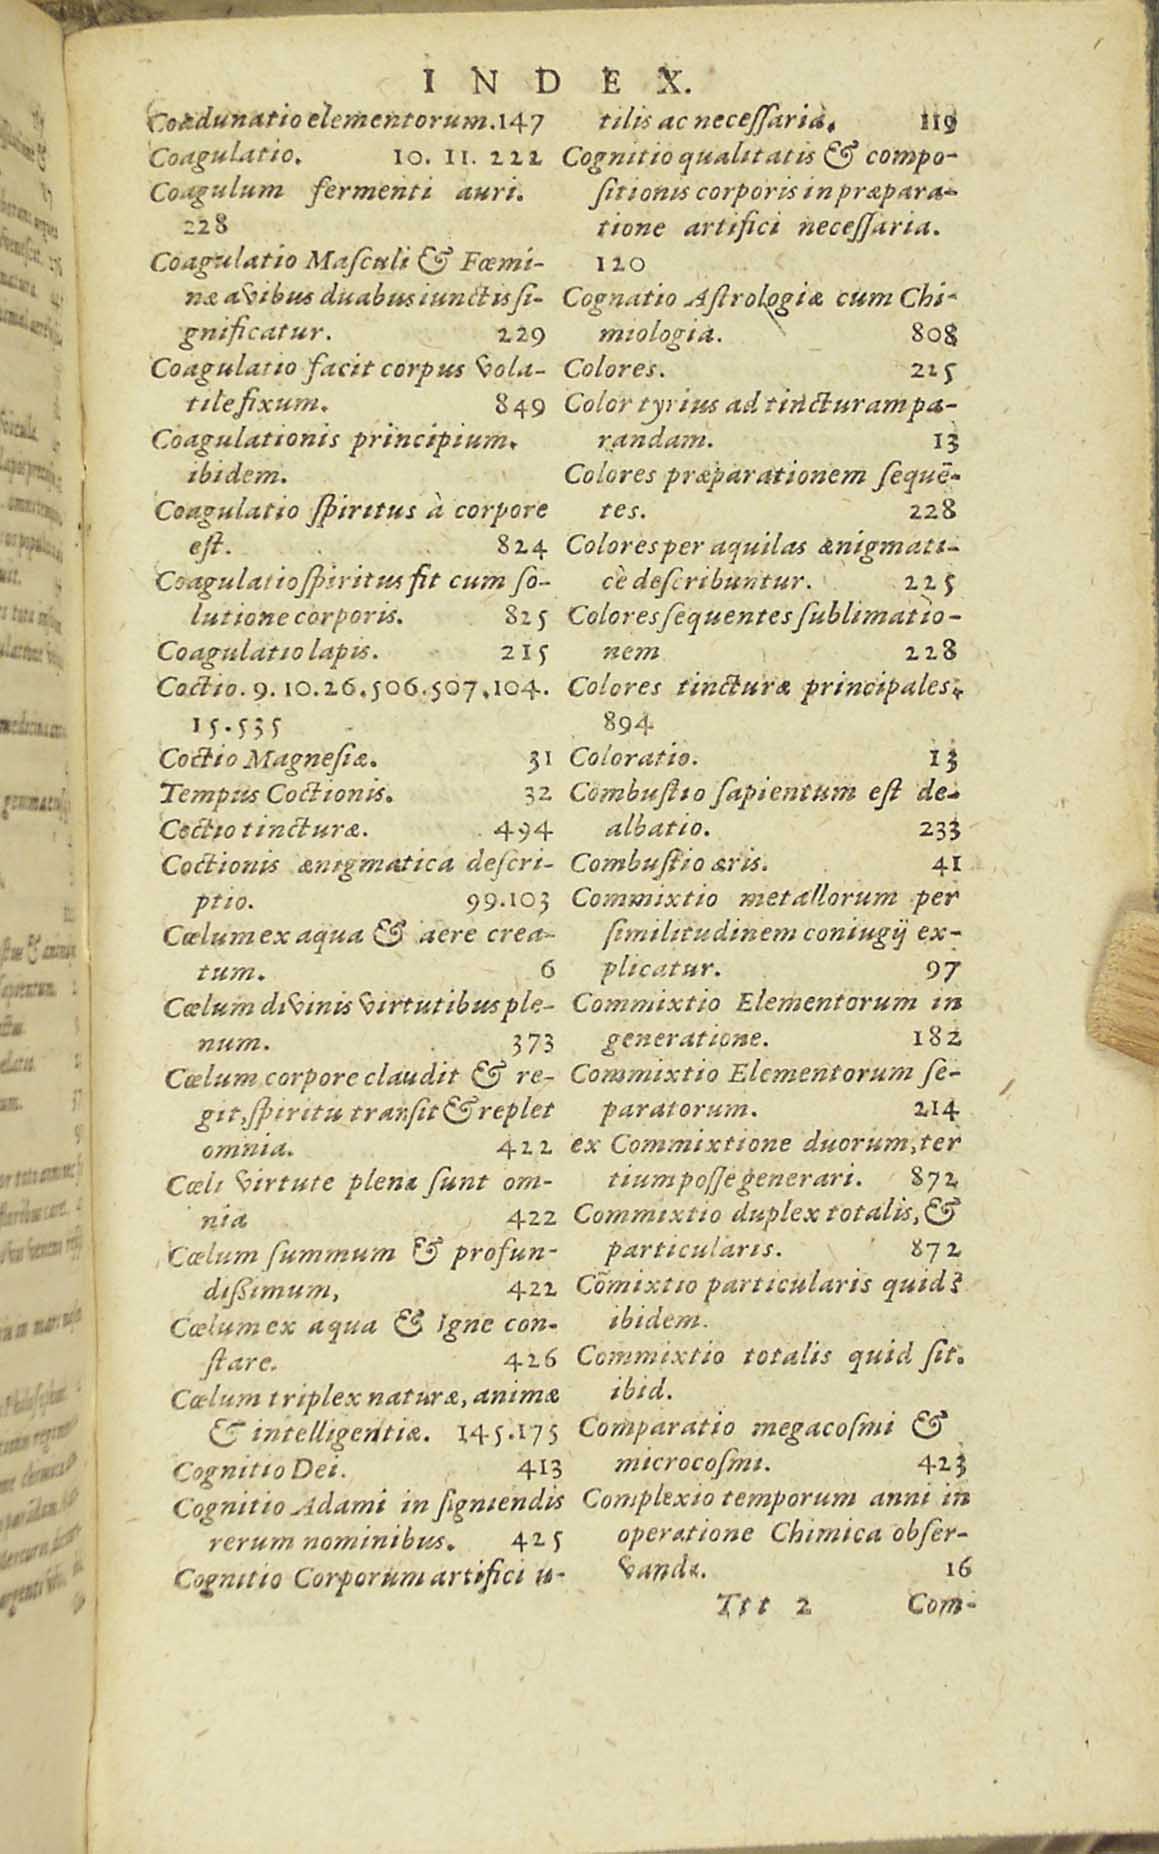 INDEX.
Coadunatio elementorum. 147
Coagulatio. 10. 11. 222
Coagulum fermenti auri.
228
Coagulatio Masculi & Fœmi-
næ avibus duabus iunctis si-
gnificatur. 229
Coagulatio facit corpus vola-
tile fixum. 849
Coagulationis principium.
ibidem.
Coagulatio spiritus à corpore
est. 824
Coagulatio spiritus fit cum so-
lutione corporis. 825
Coagulatio lapis. 215
Coctio. 9. 10. 26. 506. 507. 104.
15. 535
Coctio Magnesiæ. 31
Tempus Coctionis. 32
Coctio tincturæ. 494
Coctionis ænigmatica descri-
ptio. 99. 103
Cœlum ex aqua & aere crea-
tum. 6
Cœlum divinis virtutibus ple-
num. 373
Cœlum corpore claudit & re-
git, spiritu transit & replet
omnia. 422
Cœli virtute plena sunt om-
nia 422
Cœlum summum & profun-
dissimum, 422
Cœlum ex aqua & igne con-
stare. 426
Cœlum triplex naturæ, animæ
& intelligentiæ. 145. 175
Cognitio Dei. 413
Cognitio Adami in signiendis
rerum nominibus. 425
Cognitio Corporum artifici u-
tilis ac necessaria. 119
Cognitio qualitatis & compo-
sitionis corporis in præpara-
tione artifici necessaria.
120
Cognatio Astrologiæ cum Chi-
miologia. 808
Colores. 225
Color tyrius ad tincturam pa-
randam. 13
Colores præparationem sequē-
tes. 228
Colores per aquilas ænigmati-
cè describuntur. 225
Colores sequentes sublimatio-
nem 228
Colores tincturæ principales.
894
Coloratio. 13
Combustio sapientum est de-
albatio. 233
Combustio æris. 41
Commixtio metallorum per
similitudinem coniugij ex-
plicatur. 97
Commixtio Elementorum in
generatione. 182
Commixtio Elementorum se-
paratorum. 214
ex Commixtione duorum, ter
tium posse generari. 872
Commixtio duplex totalis, &
particularis. 872
Cōmixtio particularis quid?
ibidem.
Commixtio totalis quid sit.
ibid.
Comparatio megacosmi &
microcosmi. 423
Complexio temporum anni in
operatione Chimica obser-
vanda. 16
Ttt 2 Com-